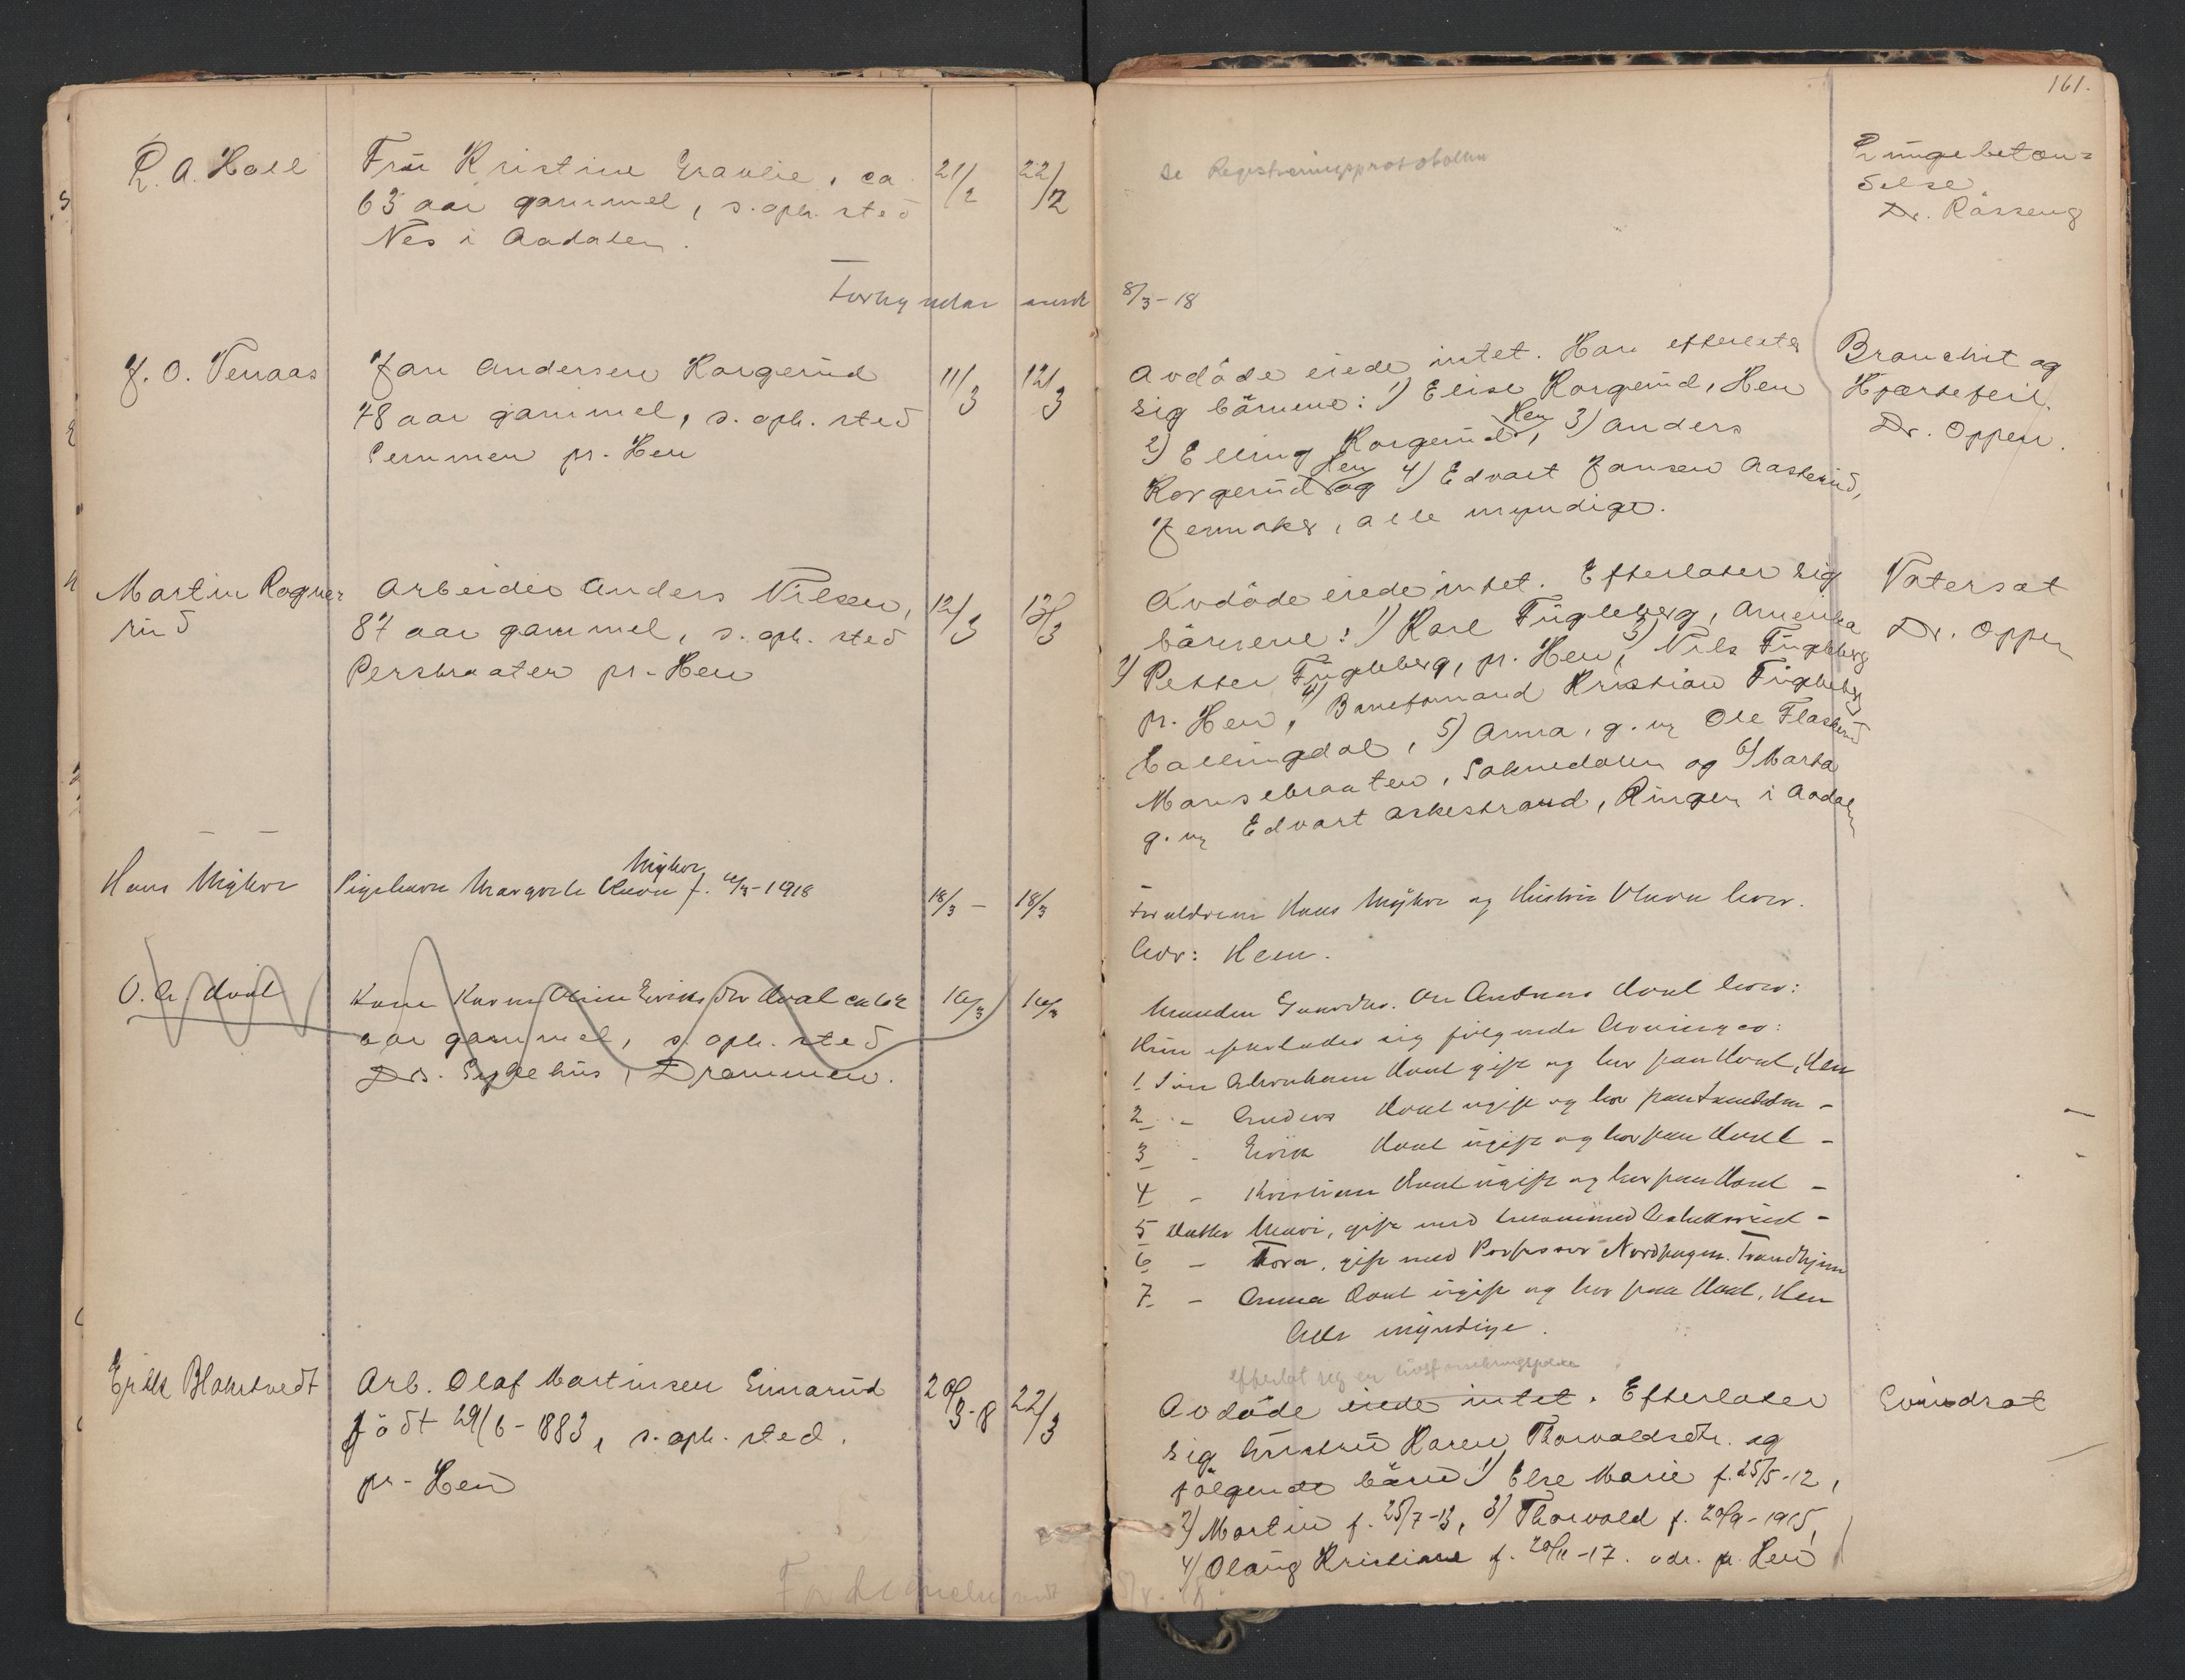 161.
R. A. Hall
Fru Kristine Graulie, ca
63 aar gammel, s. oph. sted
Nes i Aadalen.
21/2
22/2
se Registreringsprotokollen
Lungebetæn=
delse.
Dr. Råsseng
8/3-18
J. O. Venaas
Jan Andersen Korgerud
78 aar gammel, s. oph. sted
Semmen pr. Hen
11/3
12/3
Avdöde eiede intet. Han efterlater
sig börnene: 1) Elise Korgerud, Hen
2) Elling Korgerud, Hen, 3) Anders
Korgerud Hen og 4) Edvart Jansen Aasterud,
Jevnaker, alle myndige.
Bronchit og
Hjærtefeil.
Dr. Oppen.
Martin Ragne
rud
Arbeider Anders Nilsen,
87 aar gammel, s. oph. sted
Persbraaten pr. Hen
12/3
13/3
Avdöde eiede intet. Efterlater sig
börnene: 1) Karl Fugleberg, Amerika
2) Petter Fugleberg, pr. Hen, 3) Nils Fugleberg
pr. Hen, 4) Baneformand Kristian Fugleberg
Hallingdal, 5) Anna, g. m. Ole Flaskerud
Monsebraaten, Soknedalen og 6) Marta
g. m. Edvart Askestrand, Ringen i Aadalen
Natersot
Dr. Oppen
Hans Myhre
Pigebarn Margrete Myhre f. -1918
18/3 -
18/3
Foreldrene Hans Myhre og Hustru lever.
Adr: Hen.
O. A. Hval
Kone Karen Hval ca
aar gammel, s. oph. sted
Drs. Sykehus, Drammen.
16/3
16/3
Manden Gaardbr. Ole Andreas Hval lever:
Hun efterlader sig følgende Arvinger:
1. Søn Abraham Hval gift og bor paa Hval, Hen
2 - Anders Hval ugift og bor paa -
3 - Erik Hval ugift og bor paa Hval -
4 - Kristian Hval ugift og bor paa Hval -
5 Datter Mari, gift med -
6 - Tora, gift med Professor Nordhagen. Trondhjem
7 - Anna Hval ugift og bor paa Hval, Hen
Alle myndige.
Erik Blakstvedt
Arb. Olaf Martinsen Eimarud
födt 29/6-1883, s. oph. sted.
pr. Hen
20/3-18
22/3
Efterlot sig en livsforsikringspolice
Avdöde eiede intet. Efterlater
sig hustru Karen Thorvaldsdtr. og
fölgende börn 1) Else Marie f. 25/5-12,
2) Martin f. 25/7-13, 3) Thorvald f. 20/9-1915,
4) Olaug Kristiane f. 20/11-17. adr. pr. Hen